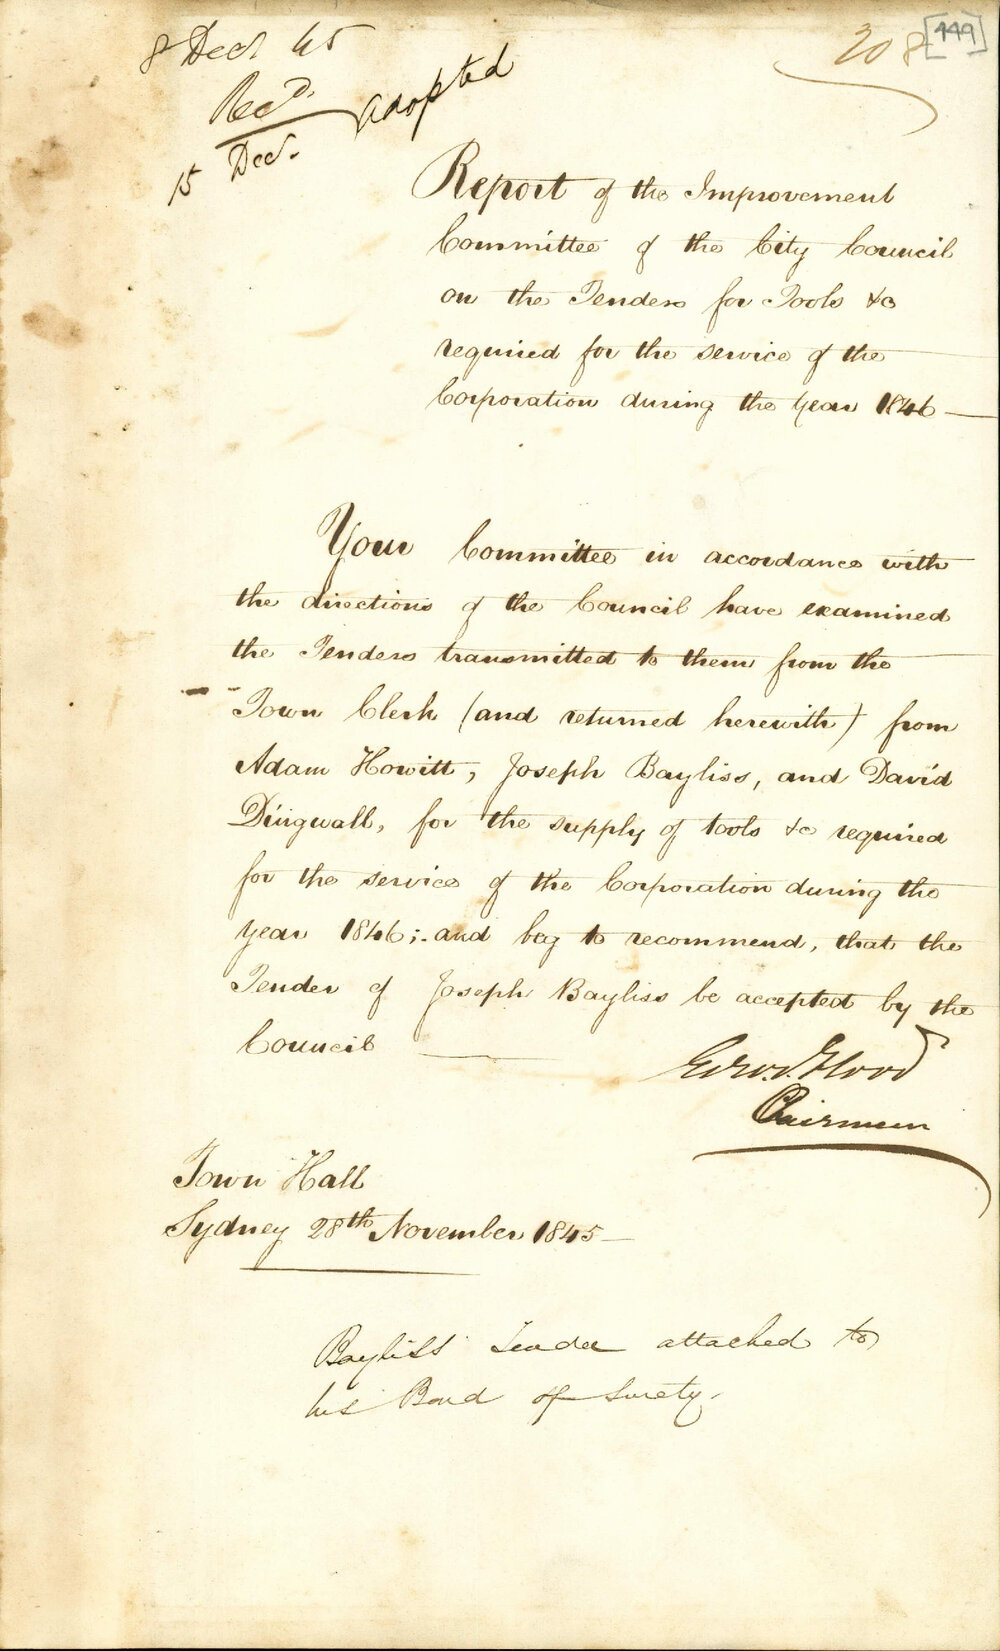 8 Decr 45
Recd.
15 Decr.
adopted
308
[449]
Report of the Improvement
Committee of the City Council
on the Tenders for Tools &c
required for the service of the
Corporation during the Year 1846
Your Committee in accordance with
the directions of the Council have examined
the Tenders transmitted to them from the
Town Clerk (and returned herewith) from
Adam Howitt, Joseph Bayliss, and David
Dingwall, for the supply of tools &c required
for the service of the Corporation during the
year 1846;- and beg to recommend, that the
Tender of Joseph Bayliss be accepted by the
Council
Edwd. Flood
Chairman
Town Hall
Sydney 28th November 1845
Bayliss' Tender attached to
his Bond of Surety.